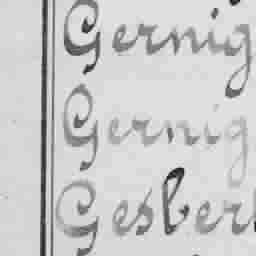 Gernig
Gernig
Gesber